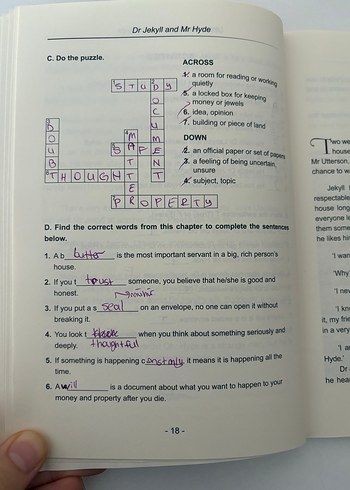 Dr Jekyll and Mr Hyde
C. Do the puzzle.
ACROSS
1. a room for reading or working
quietly
5. a locked box for keeping
money or jewels
6. idea, opinion
7. building or piece of land
DOWN
2. an official paper or set of papers
3. a feeling of being uncertain,
unsure
4. subject, topic
STUDY
DOCUMENT
DOUBT
MATTER
SAFE
THOUGHT
PROPERTY
D. Find the correct words from this chapter to complete the sentences
below.
1. A butler is the most important servant in a big, rich person's
house.
2. If you trust someone, you believe that he/she is good and
honest.
3. If you put a seal on an envelope, no one can open it without
breaking it.
4. You look t when you think about something seriously and
deeply. thoughtful
5. If something is happening constantly, it means it is happening all the
time.
6. A will is a document about what you want to happen to your
money and property after you die.
- 18 -
Two we
house
Mr Utterson,
chance to w
Jekyll
respectable
house long
everyone le
them some
he likes hi
'I wan
'Why
'I nev
'I kn
it, my frie
in a very
'I a
Hyde.'
Dr
he hea